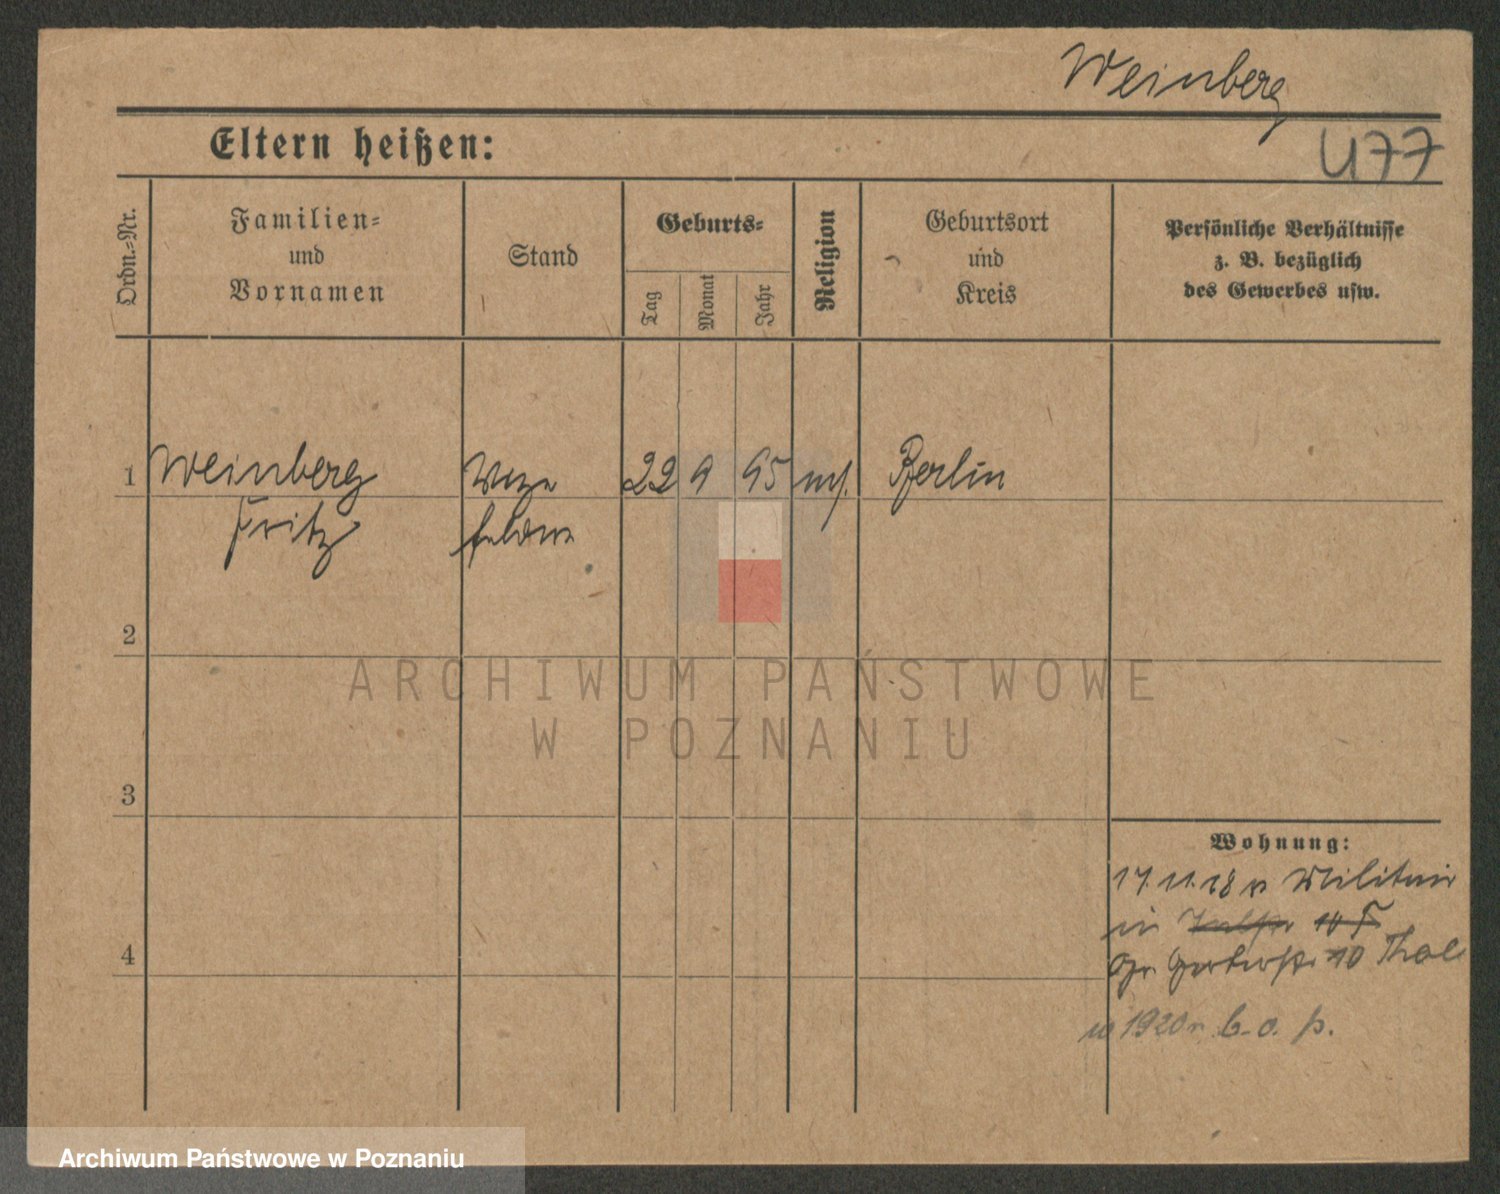 Weinberg
Eltern heißen:
U77
Ordn.=Nr.
Familien=
und
Vornamen
Stand
Geburts=
Tag
Monat
Jahr
Religion
Geburtsort
und
Kreis
Persönliche Verhältnisse
z. B. bezüglich
des Gewerbes usw.
1 Weinberg Vize 22 9 95 Berlin
Fritz feldw
2
3
4
Wohnung:
17.11.18 v Militair
in
10 Thal
w 1920 r. b. o. p.
ARCHIWUM PAŃSTWOWE
W POZNANIU
Archiwum Państwowe w Poznaniu